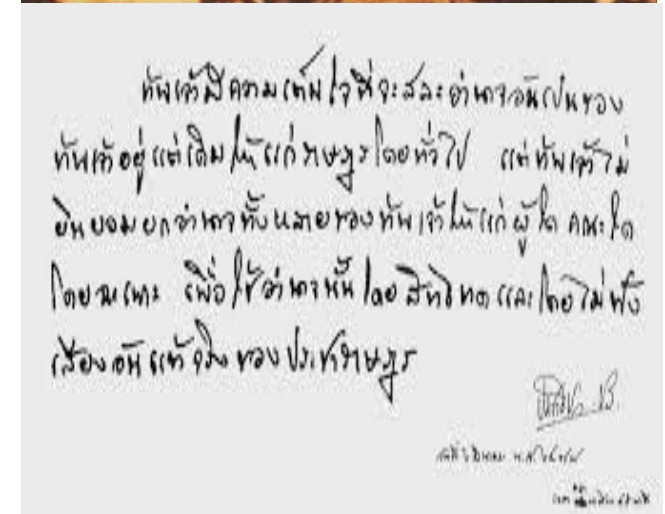 ข้าพเจ้ามีความเต็มใจที่จะสละอำนาจอันเป็นของ
ข้าพเจ้าอยู่แต่เดิมให้แก่ราษฎรโดยทั่วไป แต่ข้าพเจ้าไม่
ยินยอมยกอำนาจทั้งหลายของข้าพเจ้าให้แก่ผู้ใด คณะใด
โดยฉะเพาะ เพื่อใช้อำนาจนั้นโดยสิทธิขาดและโดยไม่ฟัง
เสียงอันแท้จริงของประชาราษฎร